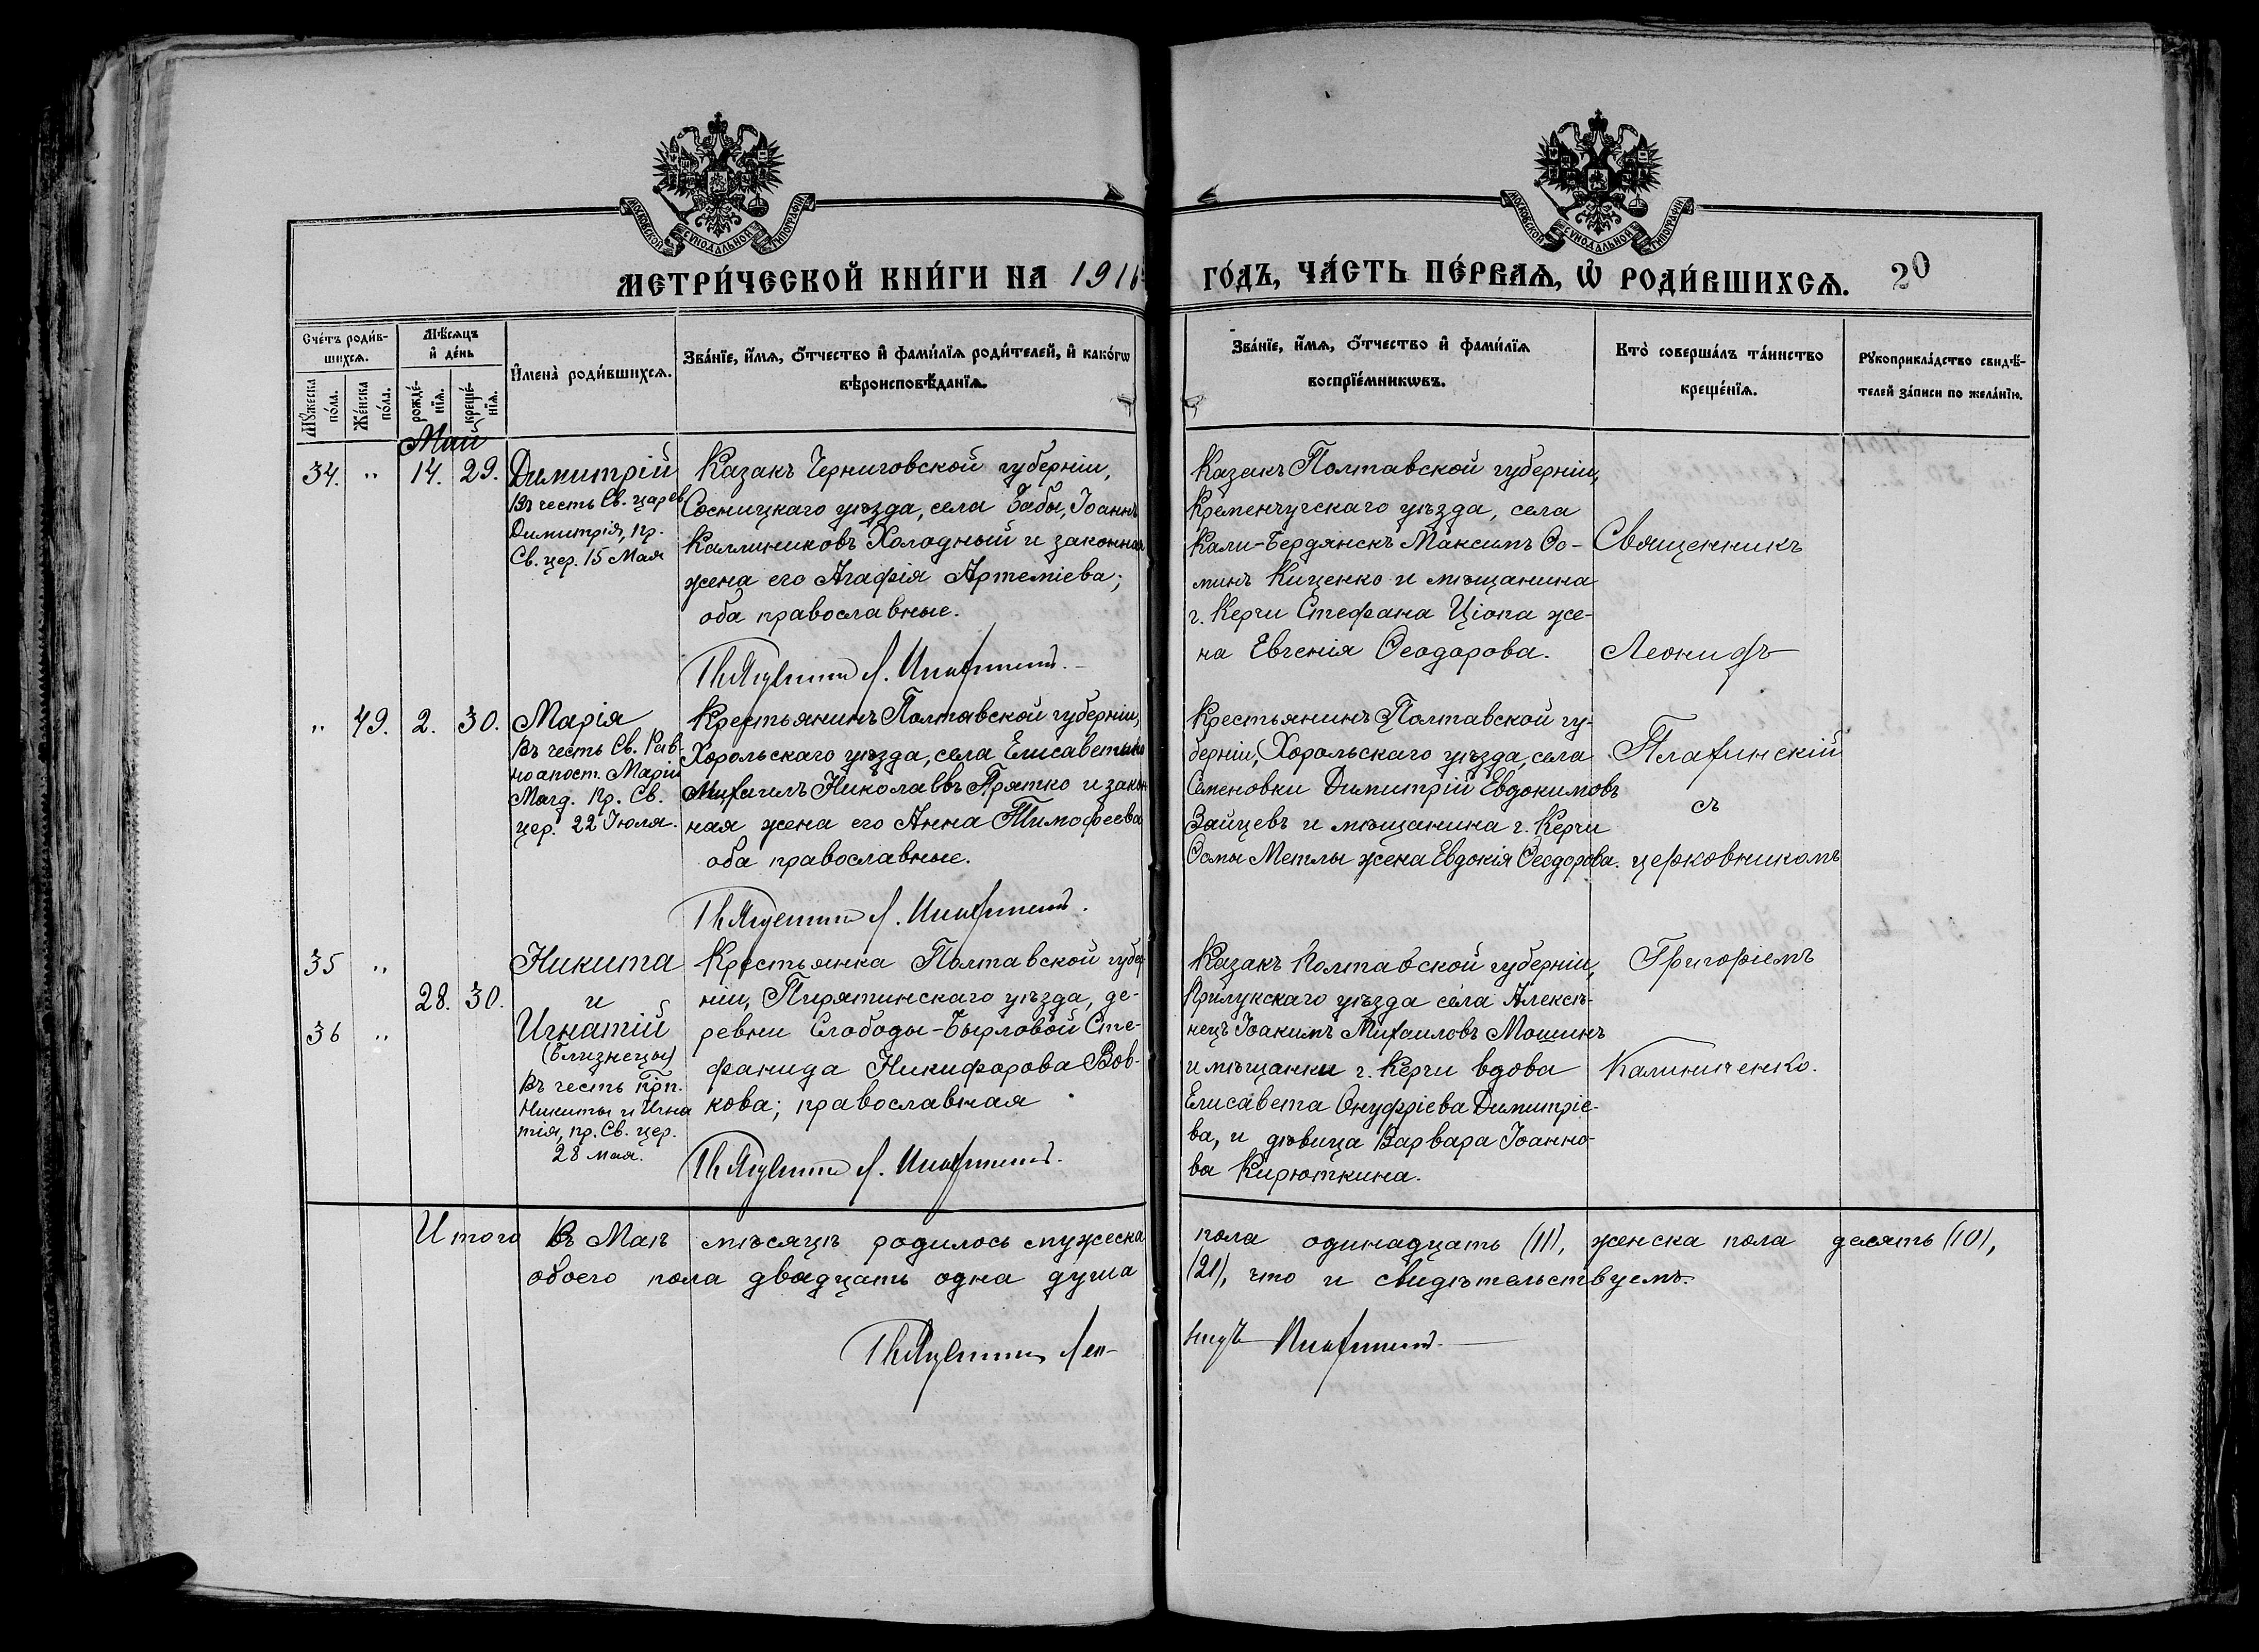 МОСКОВСКОЙ СѴНОДАЛЬНОЙ ТИПОГРАФІИ
МОСКОВСКОЙ СѴНОДАЛЬНОЙ ТИПОГРАФІИ
МЕТРИ́ЧЕСКОЙ КНИ́ГИ НА 1916
ГО́ДЪ, ЧА́СТЬ ПЕ́РВАѦ, Ѡ҆ РОДИ́ВШИХСѦ. 20
Сче́тъ роди́в-
шихсѧ.
Мꙋ́жеска по́ла.
Же́нска по́ла.
Мѣ́сѧцъ
и҆ де́нь
рожде́-
нїѧ.
креще́-
нїѧ.
И҆мена̀ роди́вшихсѧ.
Зва́нїе, и҆́мѧ, ѻ҆́тчество и҆ фами́лїѧ роди́телей, и҆ како́гѡ
вѣроисповѣ́данїѧ.
Зва́нїе, и҆́мѧ, ѻ҆́тчество и҆ фами́лїѧ
воспрїе́мникѡвъ.
Кто̀ соверша́лъ та́инство
креще́нїѧ.
Рꙋкоприкла́дство свидѣ́-
телей за́писи по жела́нїю.
Май
34. „ 14. 29.
Димитрій
Въ честь Св. царев.
Димитрія, пр.
Св. цер. 15 Мая
Казакъ Черниговской губерніи,
Сосницкаго уѣзда, села Бабы, Іоаннъ
Каллиниковъ Холодный и законная
жена его Агафія Артеміева;
оба православные.
Казакъ Полтавской губерніи,
Кременчугскаго уѣзда, села
Кали-Бердянскъ Максимъ Ѳо-
минъ Киценко и мѣщанина
г. Керчи Стефана Ціопа же-
на Евгенія Ѳеодорова.
Священникъ
Леонидъ
„ 49. 2. 30.
Марія
Въ честь Св. Рав-
ноапост. Маріи
Магд. пр. Св.
цер. 22 Іюля.
Крестьянинъ Полтавской губерніи,
Хорольскаго уѣзда, села
Михаилъ Николаевъ Прятко и закон
ная жена его Анна Тимофеева
оба православные.
Крестьянинъ Полтавской гу-
берніи, Хорольскаго уѣзда, села
Семеновки Димитрій Евдокимовъ
Зайцевъ и мѣщанина г. Керчи
Ѳомы Метлы жена Евдокія Ѳеодорова.
съ
церковникомъ
35 „
28. 30.
36 „
Никита
и
Игнатій
(близнецы)
Въ честь прп.
Никиты и Игна
тія, пр. Св. цер.
28 мая.
Крестьянка Полтавской губер
ніи, Пирятинскаго уѣзда, де-
ревни Слободы-Бырловой Сте-
фанида Никифорова Вов-
кова; православная
Казакъ Полтавской губерніи,
Прилукскаго уѣзда села Алексѣ-
нецъ Іоакимъ Михаиловъ Мошинъ
и мѣщанки г. Керчи вдова
Елисавета Онуфріева Димитріе-
ва, и дѣвица Варвара Іоанно-
ва Кирюткина.
Григоріемъ
Калиниченко.
Итого въ Маѣ мѣсяцѣ родилось мужеска
пола одинадцать (11), женска пола десять (10),
обоего пола двадцать одна душа
(21), что и свидѣтельствуемъ.